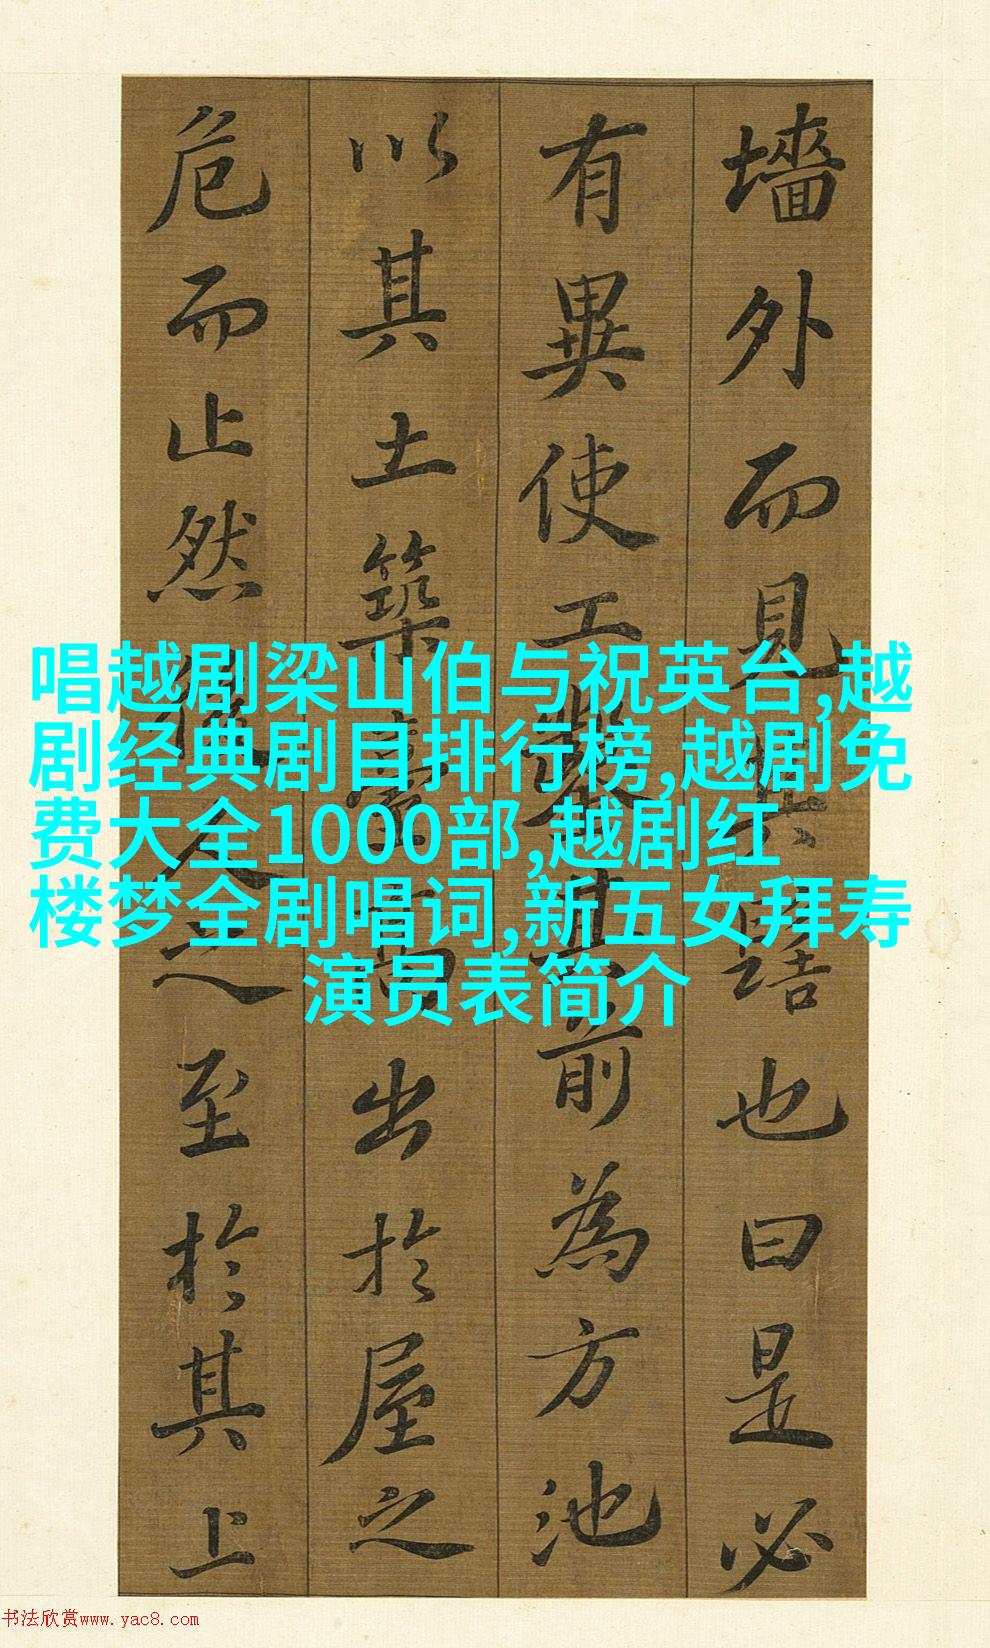 墻外而見其髻也曰是必
有異使工鑿其前為方池
以其土築臺高出於屋之
危而止然後人之至於其上
唱越剧梁山伯与祝英台,越
剧经典剧目排行榜,越剧免
费大全1000部,越剧红
楼梦全剧唱词,新五女拜寿
演员表简介
书法欣赏www.yac8.com